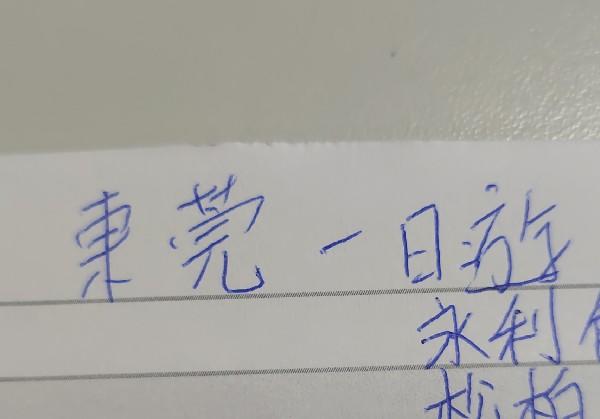 東莞一日遊
永利
松柏